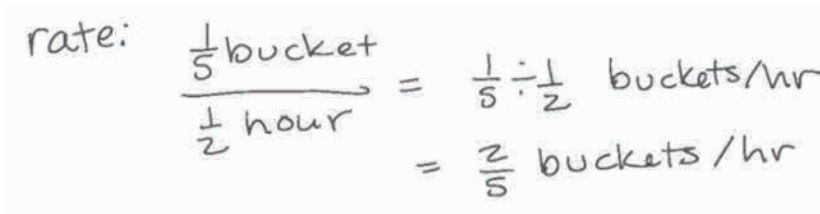 rate: 1/5 bucket / 1/2 hour = 1/5 ÷ 1/2 buckets/hr
= 2/5 buckets/hr